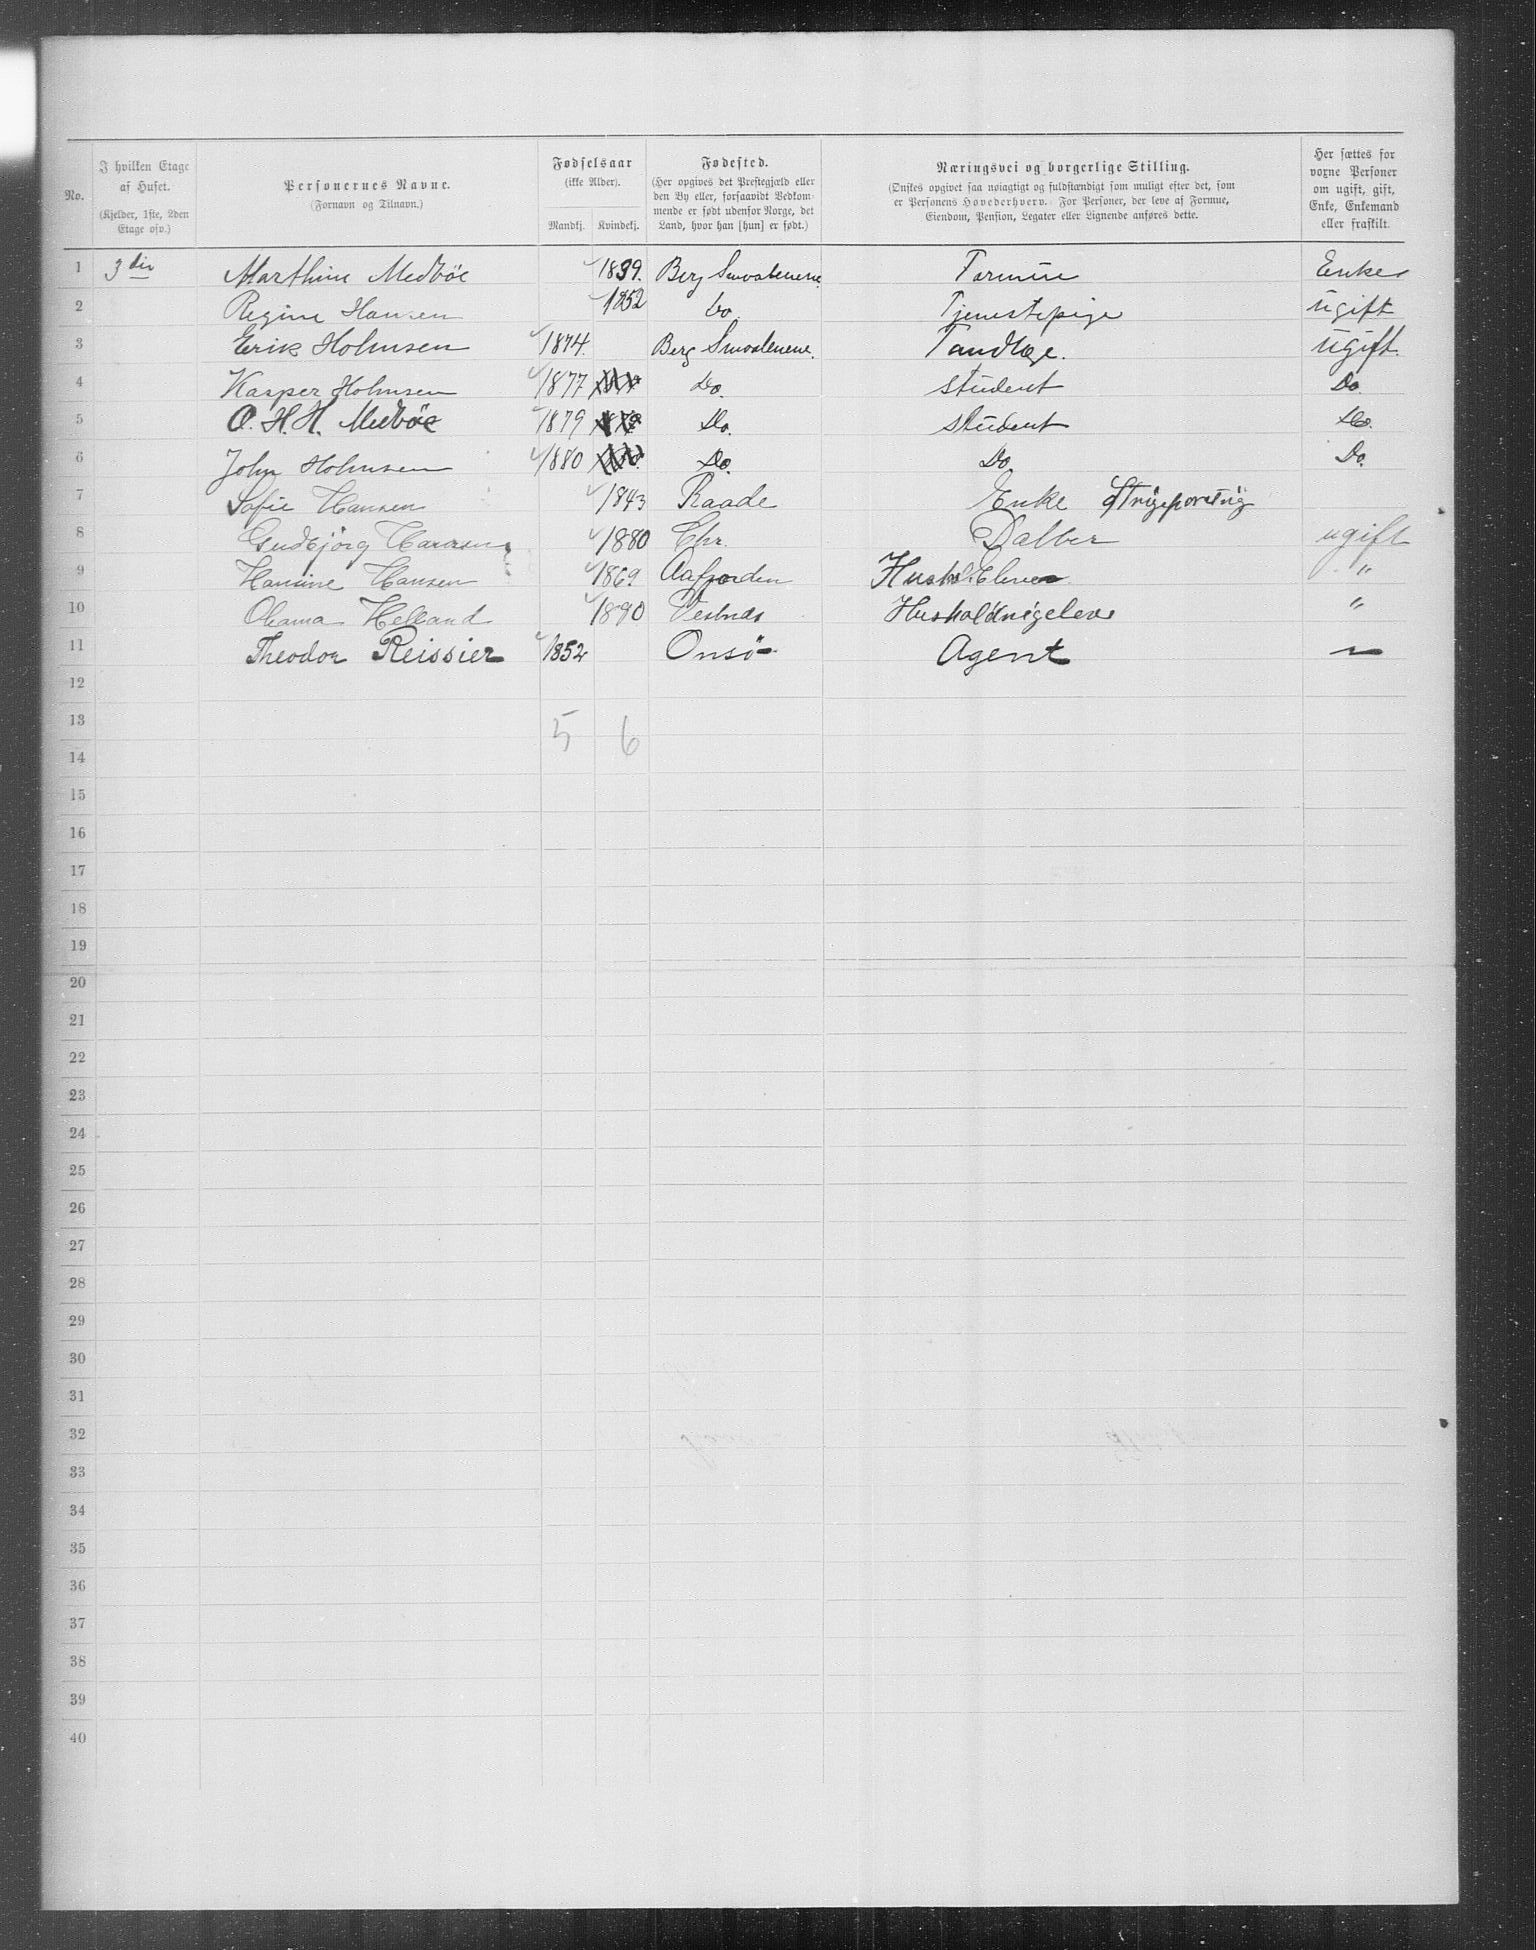 No. | I hvilken Etage af Huset. (Kjelder, 1ste, 2den Etage osv.) | Personernes Navne. (Fornavn og Tilnavn.) | Fødselsaar (ikke Alder). Mandkj. | Kvindekj. | Fødested. (Her opgives det Prestegjæld eller den By eller, forsaavidt Vedkommende er født udenfor Norge, det Land, hvor han [hun] er født.) | Næringsvei og borgerlige Stilling. (Ønskes opgivet saa nøiagtigt og fuldstændigt som muligt efter det, som er Personens Hovederhverv. For Personer, der leve af Formue, Eiendom, Pension, Legater eller Lignende anføres dette. | Her sættes for voxne Personer om ugift, gift, Enke, Enkemand eller fraskilt.
1 3die Marthine Medbøe 1839. Berg Smaalenene Formue Enke
2 Regine Hansen 1852 Do. Tjenestepige ugift
3 Erik Holmsen 1874. Berg Smaalenene. Tandlæge. ugift.
4 Kasper Holmsen 1877 Do. student Do.
5 O. H. H. Medbøe 1879 Do. student Do.
6 John Holmsen 1880 Do. Do Do.
7 Sofie Hansen 1843 Raade Enke
8 Gudbjörg Hansen 1880 Chr. ugift
9 Hansine Hansen 1869 Aafjorden Hush. Eleve "
10 Helland 1890 Vestnes Husholdnigelev "
11 Theodor Reissier 1852 Onsö Agent "
12
13 5 6
14
15
16
17
18
19
20
21
22
23
24
25
26
27
28
29
30
31
32
33
34
35
36
37
38
39
40